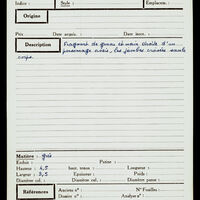 Indice : Style : Emplacem. :
Origine
Prix Date acquis. : Date inven. :
Description Fragment de genou et main droite d'un
personnage assis, les jambes croisées sous le
corps.
Matière : grès
Enduit : Patine :
Hauteur : 4,5 haut. totale : Longueur :
Largeur : 3,5 Epaisseur : Poids :
Diamètre col. : Diamètre panse :
Références Anciens n° : N° Fouilles :
Dessin n° : Analyse n° :